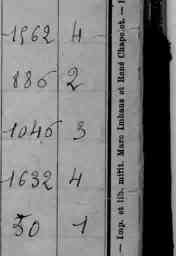 1962 4
886 2
1046 3
1632 4
50 1
— Imp. et lib. milit. Marc Imhaus et René Chapelot. —